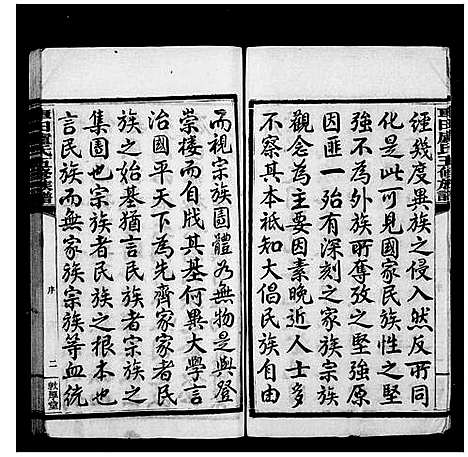 經幾度異族之侵入然所同
化是此可見國家民族性之堅
強不為外族所奪攷之堅強原
因匪一殆有深刻之家族宗族
觀念為主要因素晚近人士多
不察其本祗知大倡民族自由
而視宗族團體為無物是與登
崇樓而自戕其基何異大學言
治國平天下為先齊家者民
族之始基猶言民族者宗族之
集團也宗族者民族之根本也
言民族而無家族宗族等血統
序
二
敦厚堂